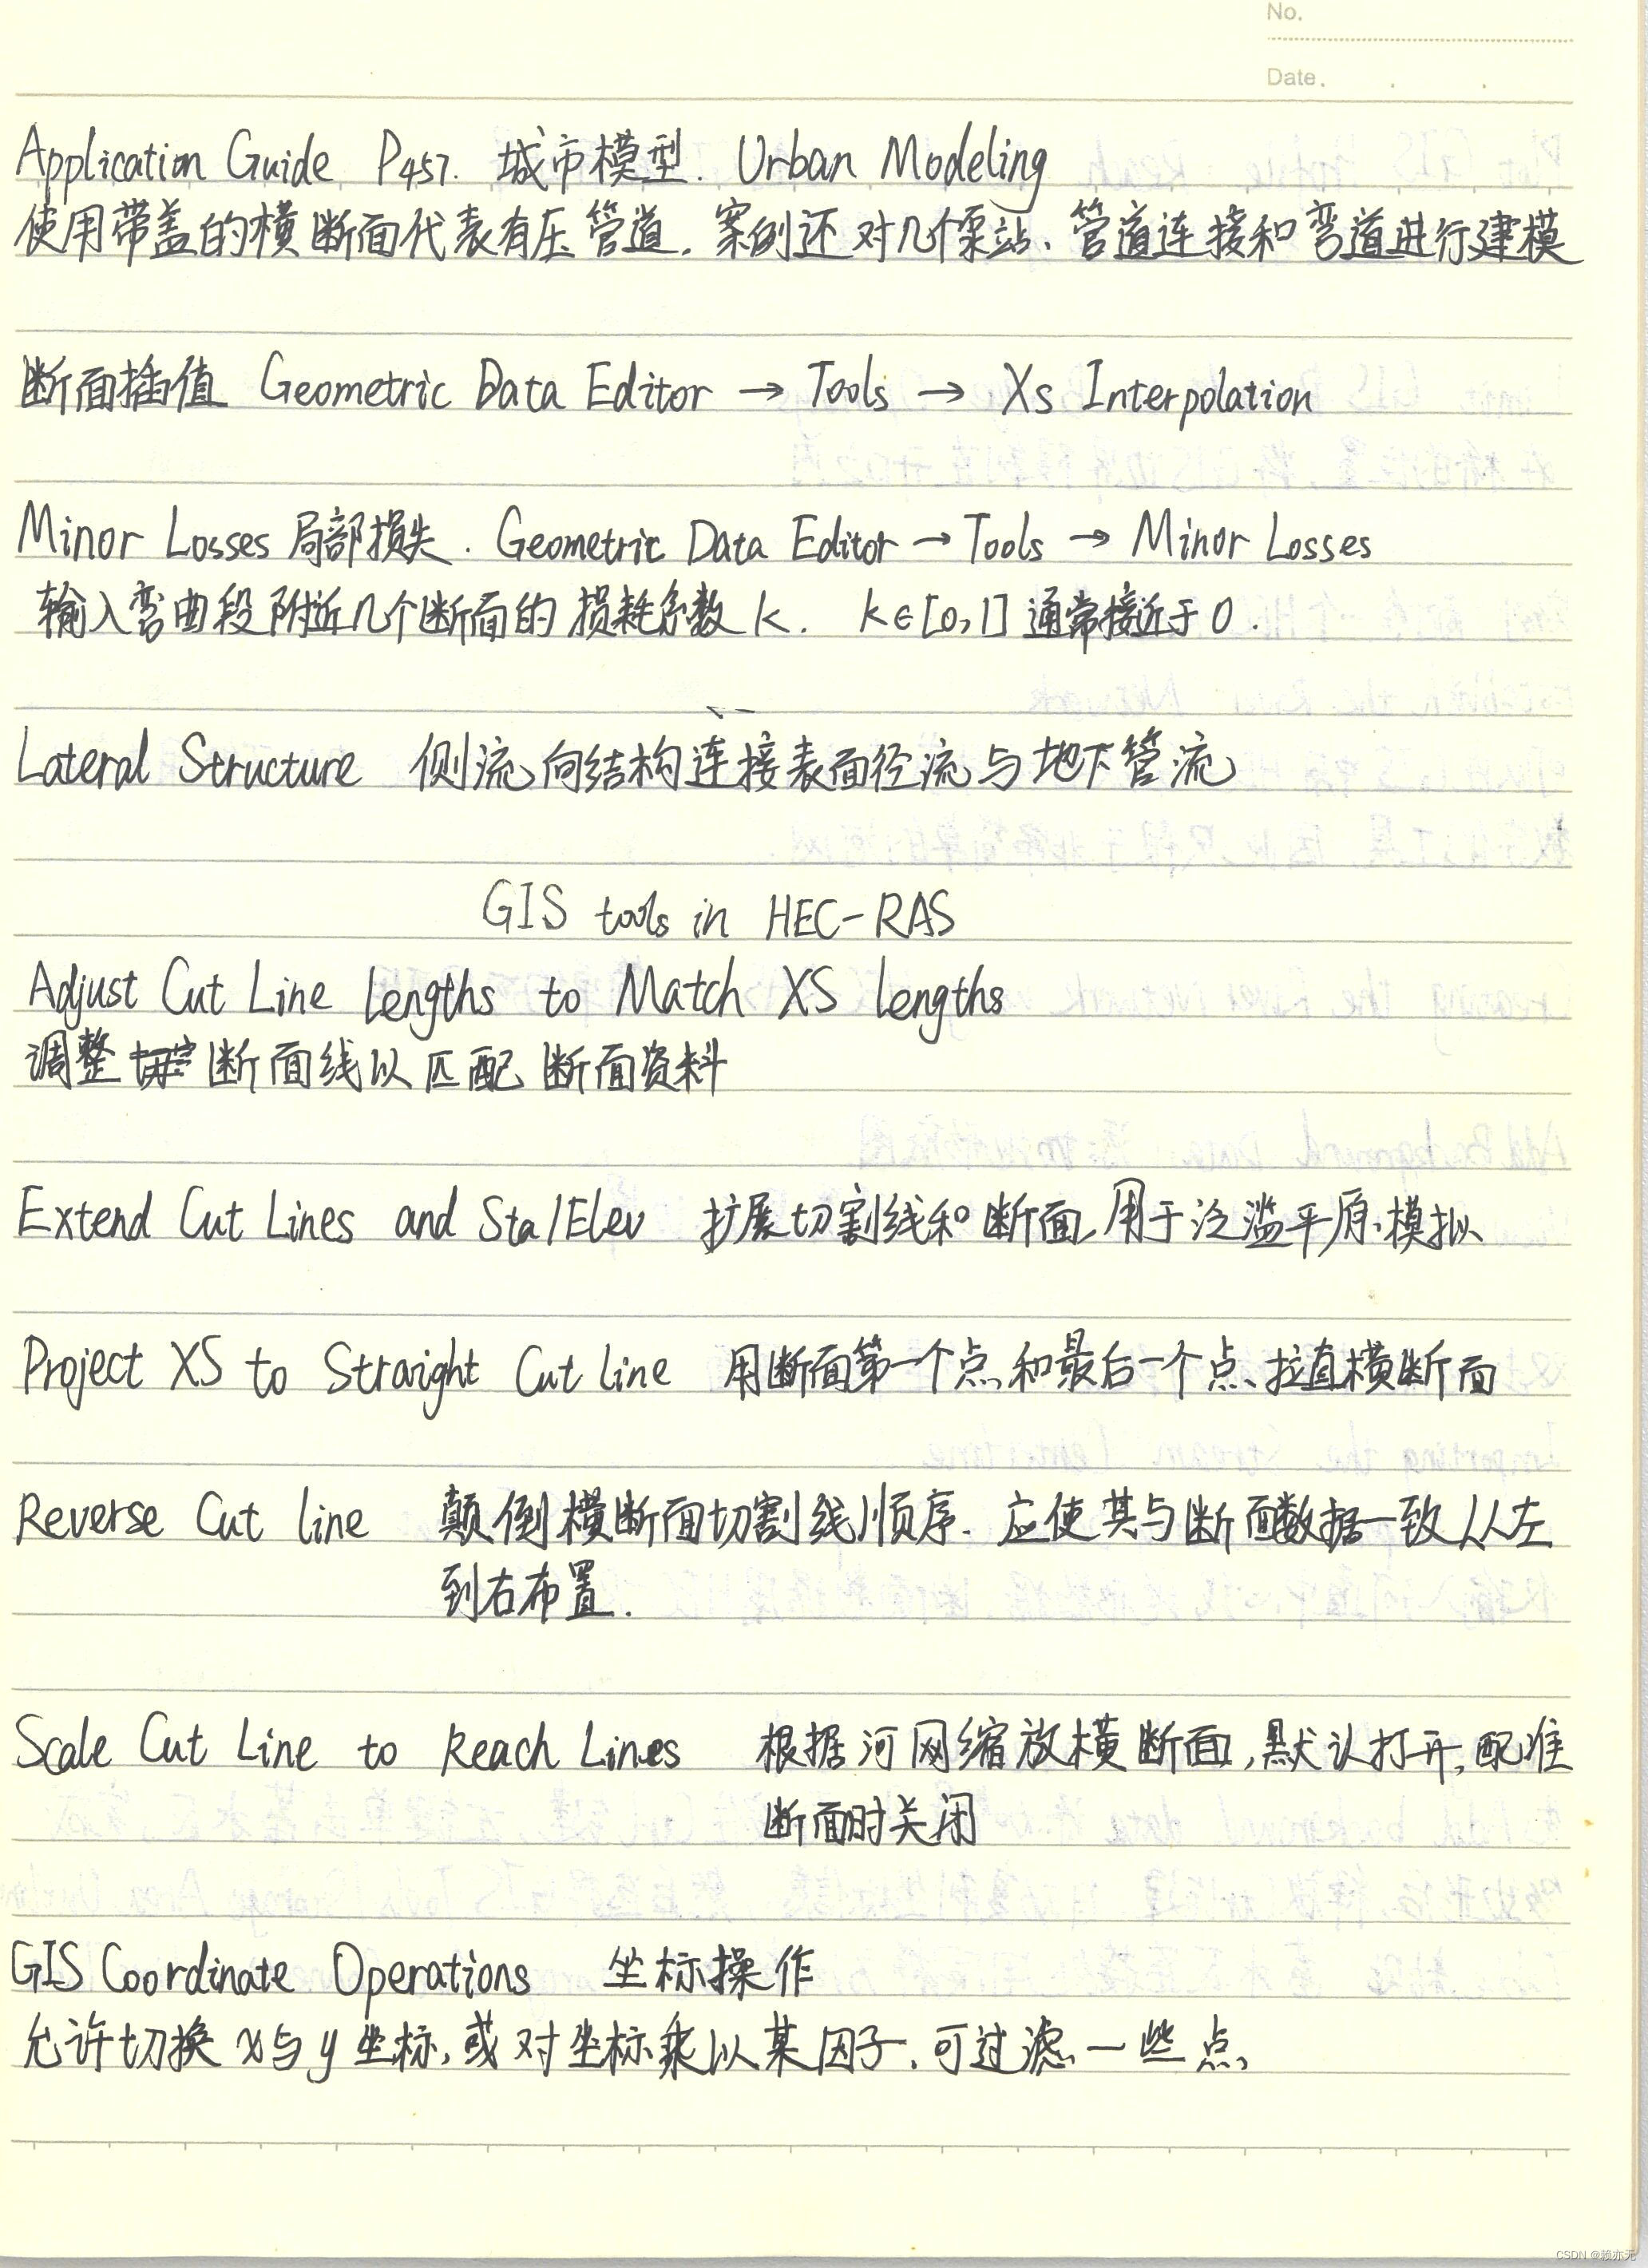 No.
Date.
Application Guide P457. 城市模型. Urban Modeling
使用带盖的横断面代表有压管道. 案例还对几个泵站、管道连接和弯道进行建模
断面插值 Geometric Data Editor → Tools → Xs Interpolation
Minor Losses 局部损失. Geometric Data Editor → Tools → Minor Losses
输入弯曲段附近几个断面的损耗系数 k. k∈[0,1] 通常接近于 0.
Lateral Structure 侧流向结构连接表面径流与地下管流
GIS tools in HEC-RAS
Adjust Cut Line Lengths to Match XS Lengths
调整 断面线以匹配断面资料
Extend Cut Lines and Sta/Elev 扩展切割线和断面,用于泛滥平原模拟
Project XS to Straight Cut line 用断面第一个点和最后一个点、拉直横断面
Reverse Cut line 颠倒横断面切割线顺序. 应使其与断面数据一致从左
到右布置.
Scale Cut Line to Reach Lines 根据河网缩放横断面,默认打开,配准
断面时关闭
GIS Coordinate Operations 坐标操作
允许切换 x与y坐标,或对坐标乘以某因子.可过滤一些点
CSDN @赖亦无